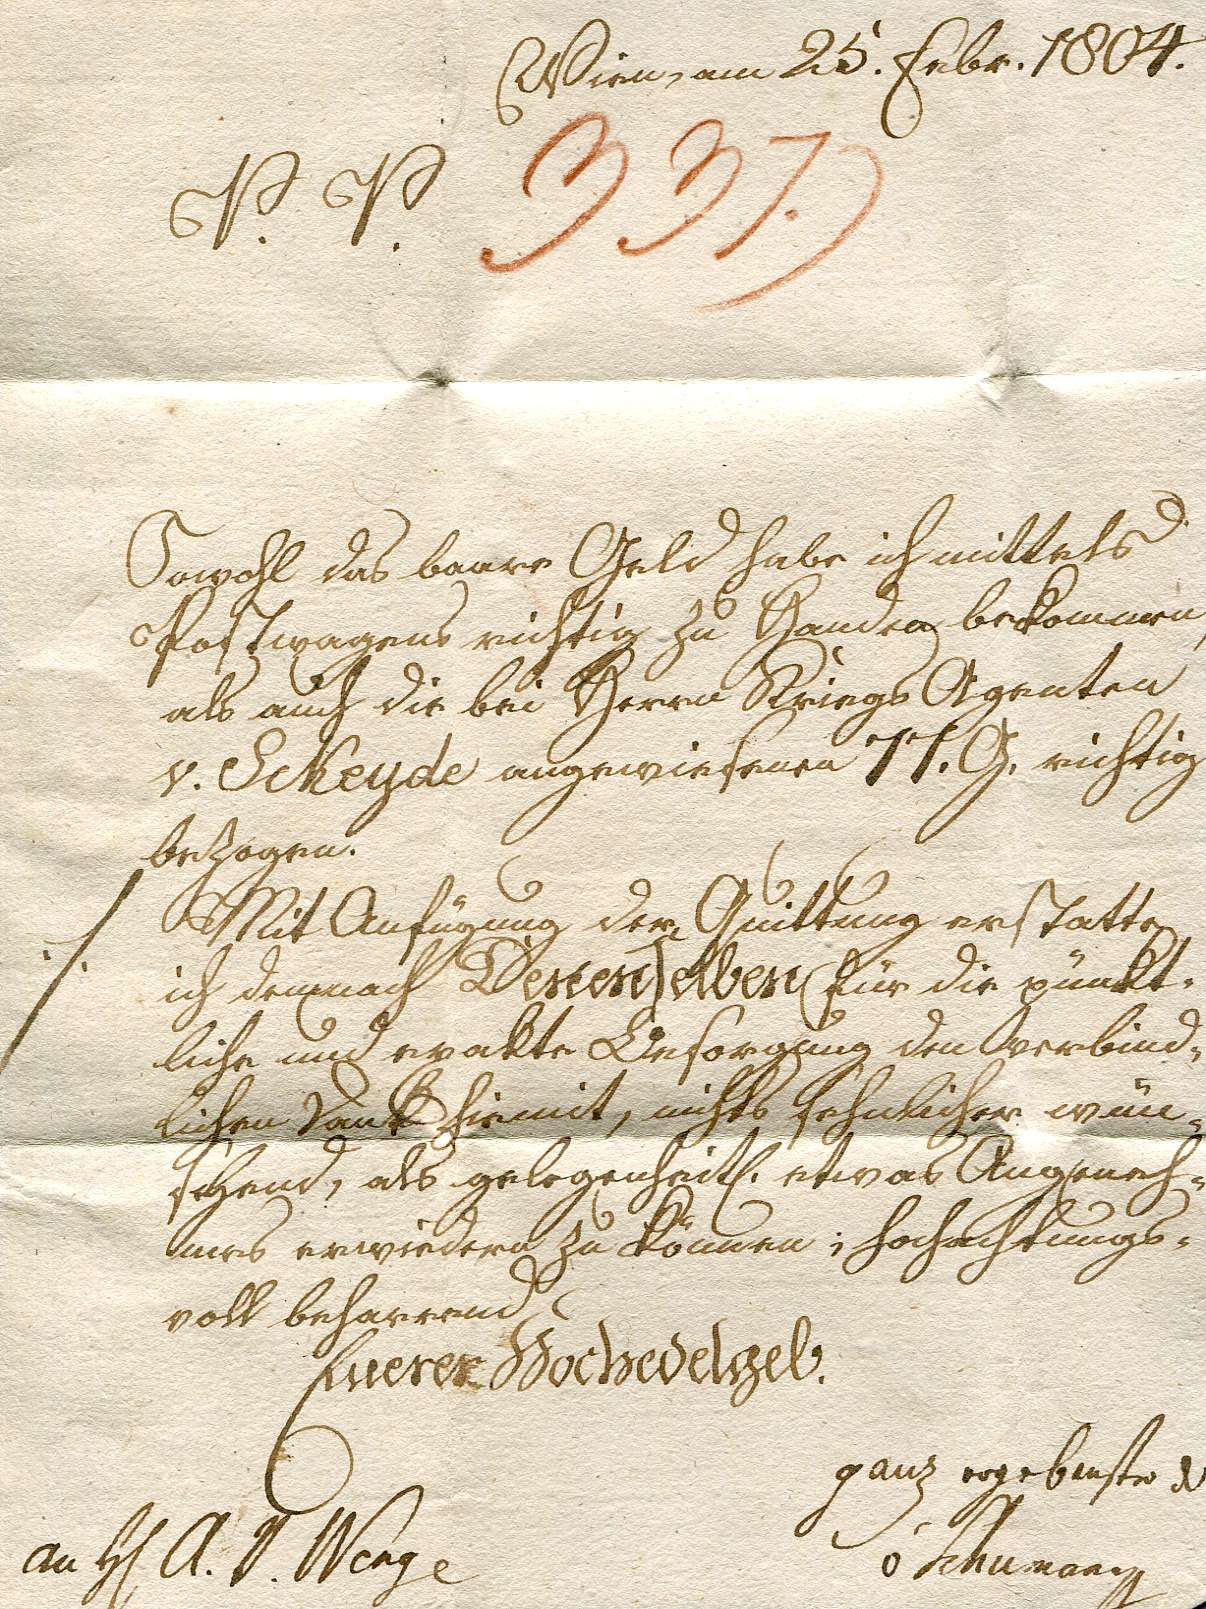 Wien, am 25. Febr. 1804.
P. P.
337.)
Sowohl das baare Geld habe ich mittels
Postwagens richtig zu Handen bekommen,
als auch die bei Herrn Kriegs Agenten
v. Scheyde angewiesenen G. richtig
bezogen.
Mit Anfügung der Quittung erstatte
ich demnach Denenselben für die pünkt-
liche und exakte Besorgung den verbind-
lichen Dank hiemit, nichts sehnlicher wün-
schend, als gelegenheitl. etwas Angeneh-
mes erwiedern zu können; hochachtungs-
voll beharrend
Euerer Hochedelgeb.
ganz ergebenster
an H A. V. Wenge